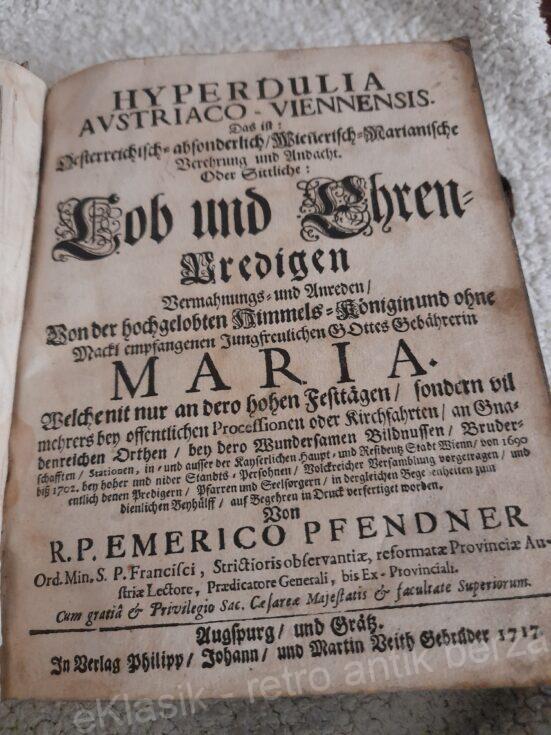 HYPERDULIA
AVSTRIACO - VIENNENSIS.
Das ist:
Oesterreichisch-absonderlich/Wieñerisch-Marianische
Verehrung und Andacht.
Oder Sittliche:
Lob und Ehren-
Predigen
Vermahnungs- und Anreden/
Von der hochgelobten Himmels-Königin und ohne
Mackl empfangenen Jungfreulichen GOttes Gebährerin
MARIA.
Welche nit nur an dero hohen Festtägen / sondern vil
mehrers bey offentlichen Processionen oder Kirchfahrten / an Gna-
denreichen Orthen / bey dero Wundersamen Bildnussen / Bruder-
schafften / Stationen, in- und ausser der Kayserlichen Haupt- und Residentz Stadt Wienn / von 1690
biß 1702. bey hoher und nider Standts-Persohnen / Volckreicher Versamblung vorgetragen / und
entlich denen Predigern / Pfarren und Seelsorgern / in dergleichen Begebenheiten zum
dienlichen Beyhülff / auf Begehren in Druck verfertiget worden.
Von
R. P. EMERICO PFENDNER
Ord. Min. S. P. Francisci, Strictioris observantiæ, reformatæ Provinciæ Au-
striæ Lectore, Prædicatore Generali, bis Ex-Provinciali.
Cum gratiâ & Privilegio Sac. Cæsareæ Majestatis & facultate Superiorum.
Augspurg / und Grätz.
In Verlag Philipp / Johann / und Martin Veith Gebrüder 1717.
eKlasik - retro antik berza